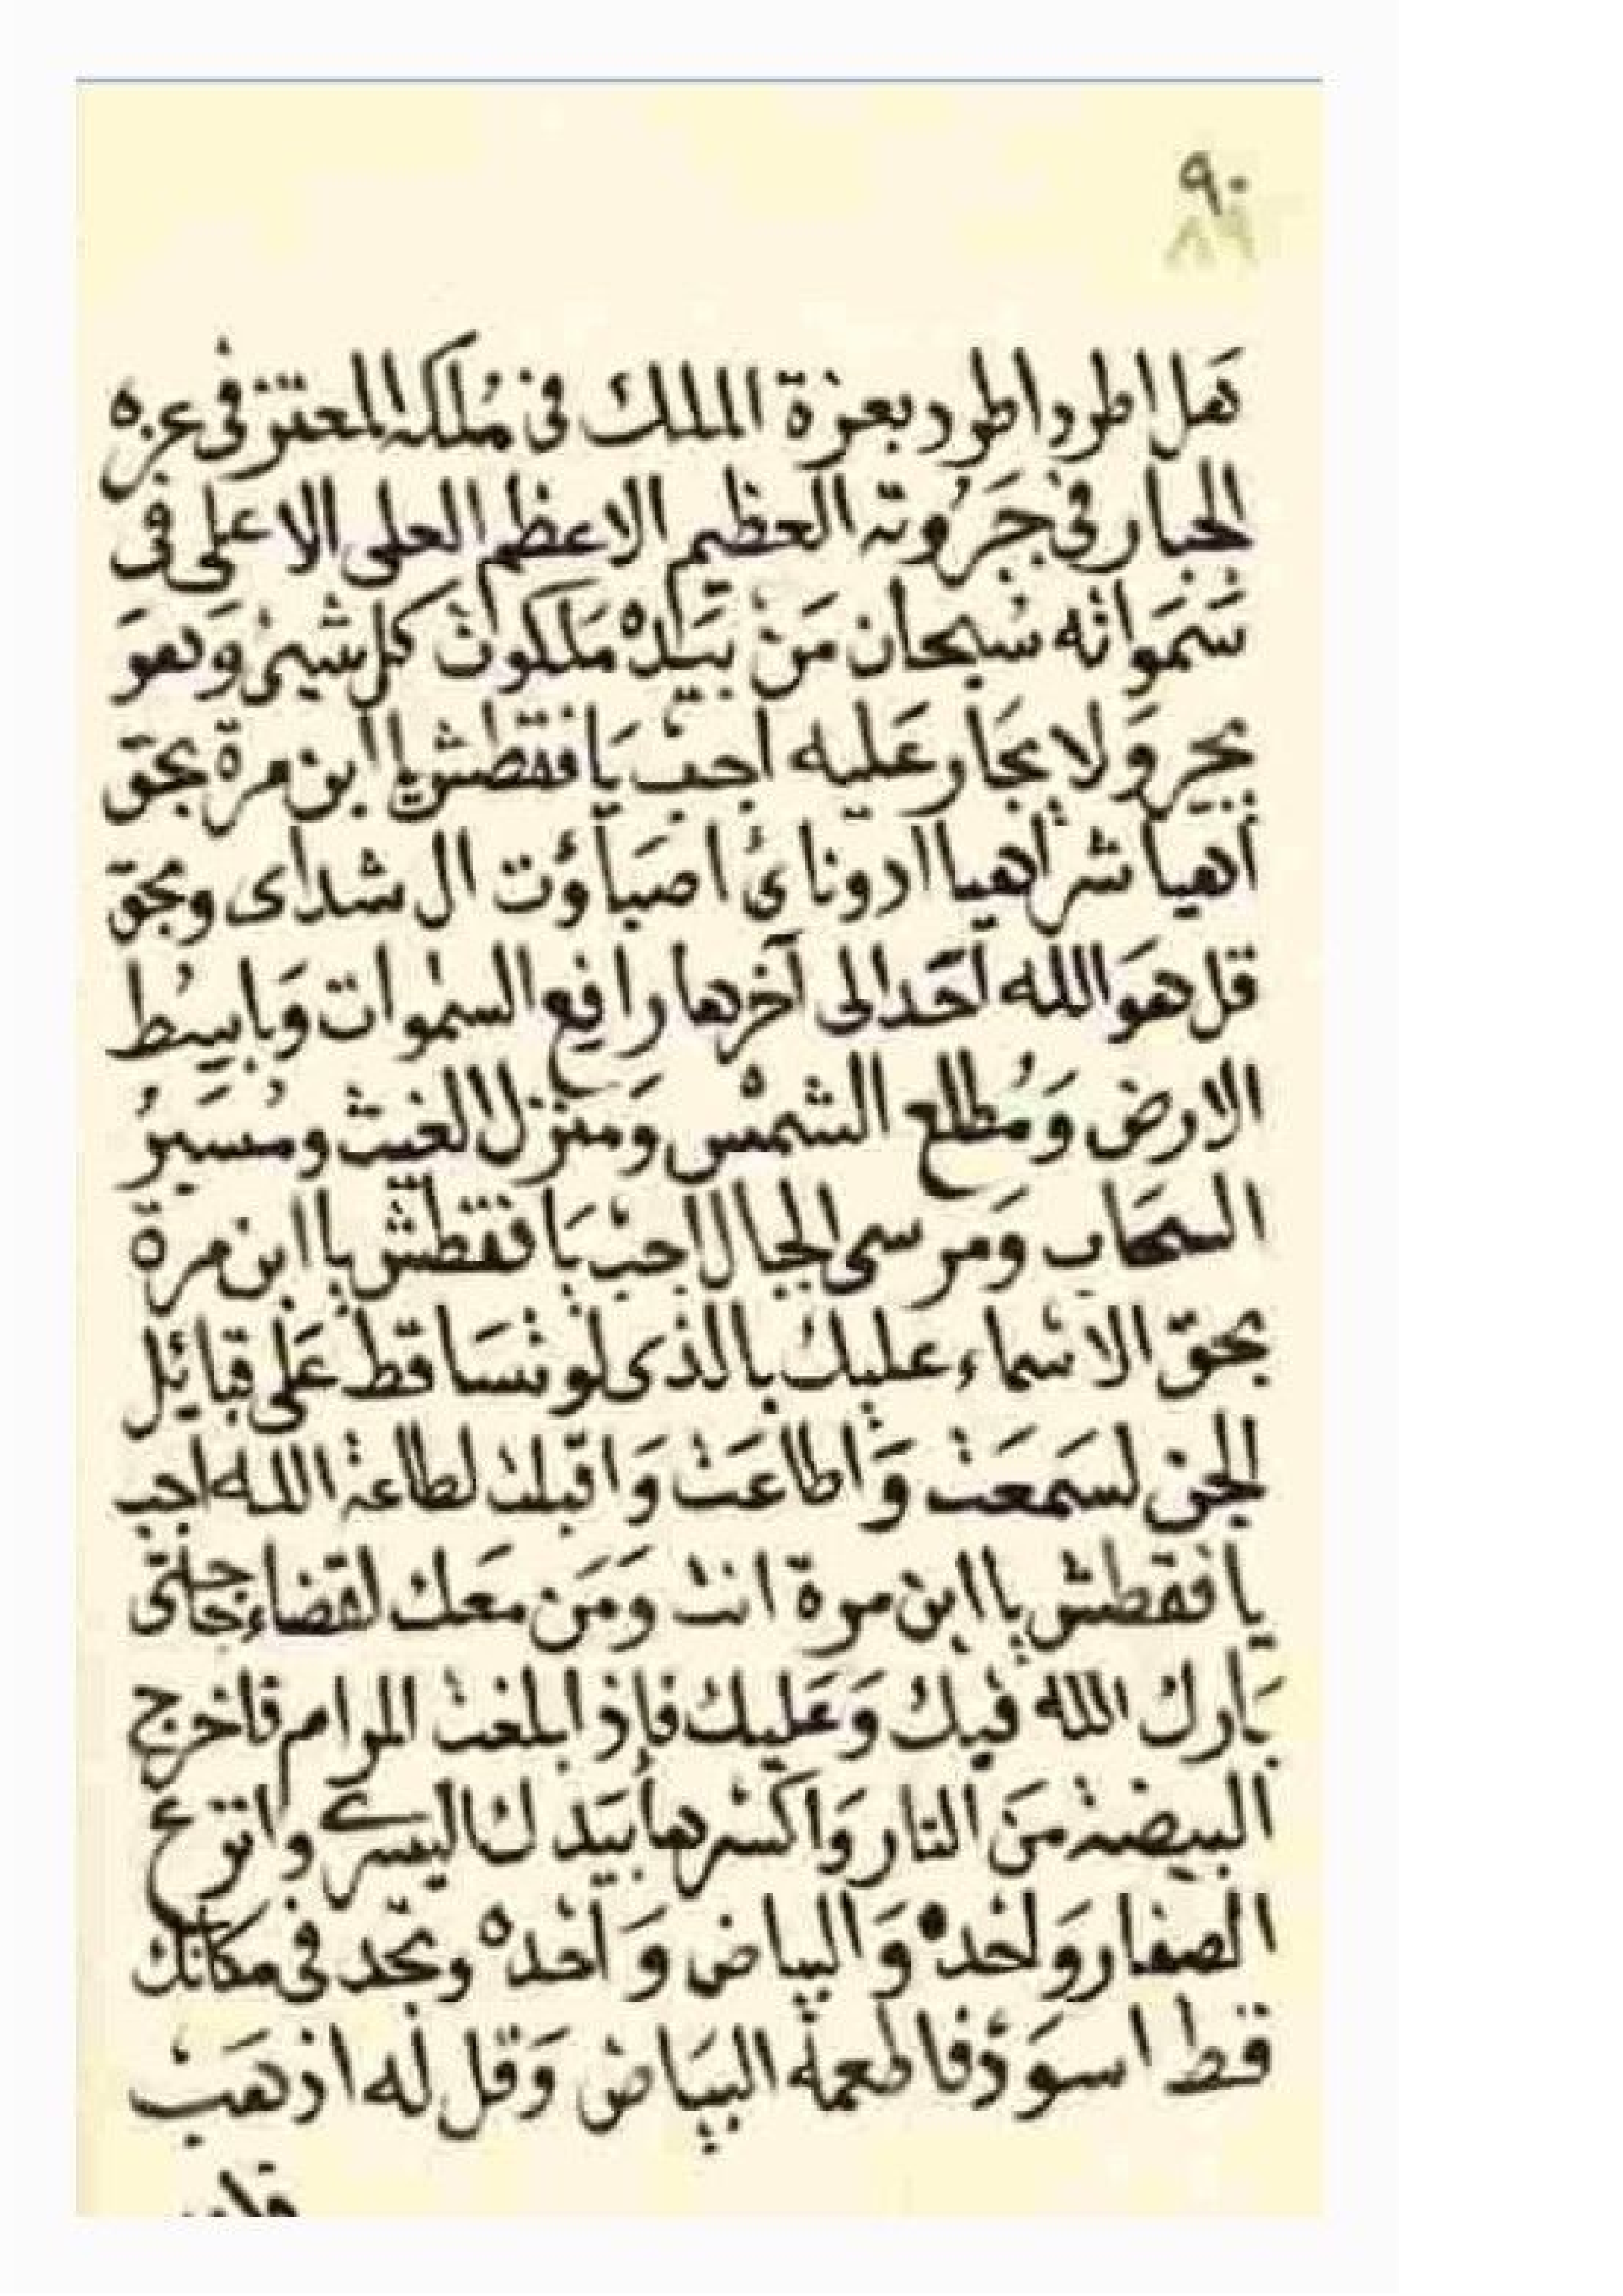 ٩٠
٨٩
هل اطور اطور بعزة الملك فى مُلكه المعتز فى عزه
الجبار فى جَبَرُوته العظيم الاعظم العلى الاعلى فى
سَمَواته سُبحان مَنْ بيَدهْ مَلَكُوت كل شيئ وَهوَ
يجير وَلا يُجَار عَليه اجبْ يَا فقطش يا ابن مرة بحق
أهيا شر اهيا ادوناىُ اصَبَاؤُت ال شداى وبحق
قل هوَ الله احَد الى آخرها رافع السموات وَباسِط
الارض وَمُطلع الشمْس وَمنزل الغيث ومُسَيرُ
السحَاب وَمرسى الجبال اجبْ يَا فقطش يا ابن مرة
بحق الاسماء عليك بالذى لو تسَاقط عَلى قبائل
الجن لسَمعَتْ وَاطاعَتْ وَاقبلت لطاعة الله اجب
يا فقطش يا ابن مرة انت وَمَن معَك لقضاء حاجتى
بَارك الله فيك وَعَليك فاذا بلغت المرام فاخرج
البيضة منَ النار وَاكسرها بيَدك اليسرى وانزع
الصفار وَحْده وَالبياض وَحْدهْ وتجد فى مكانك
قط اسوَدْ فاطعمهْ البيَاضْ وَقل له اذهَبْ